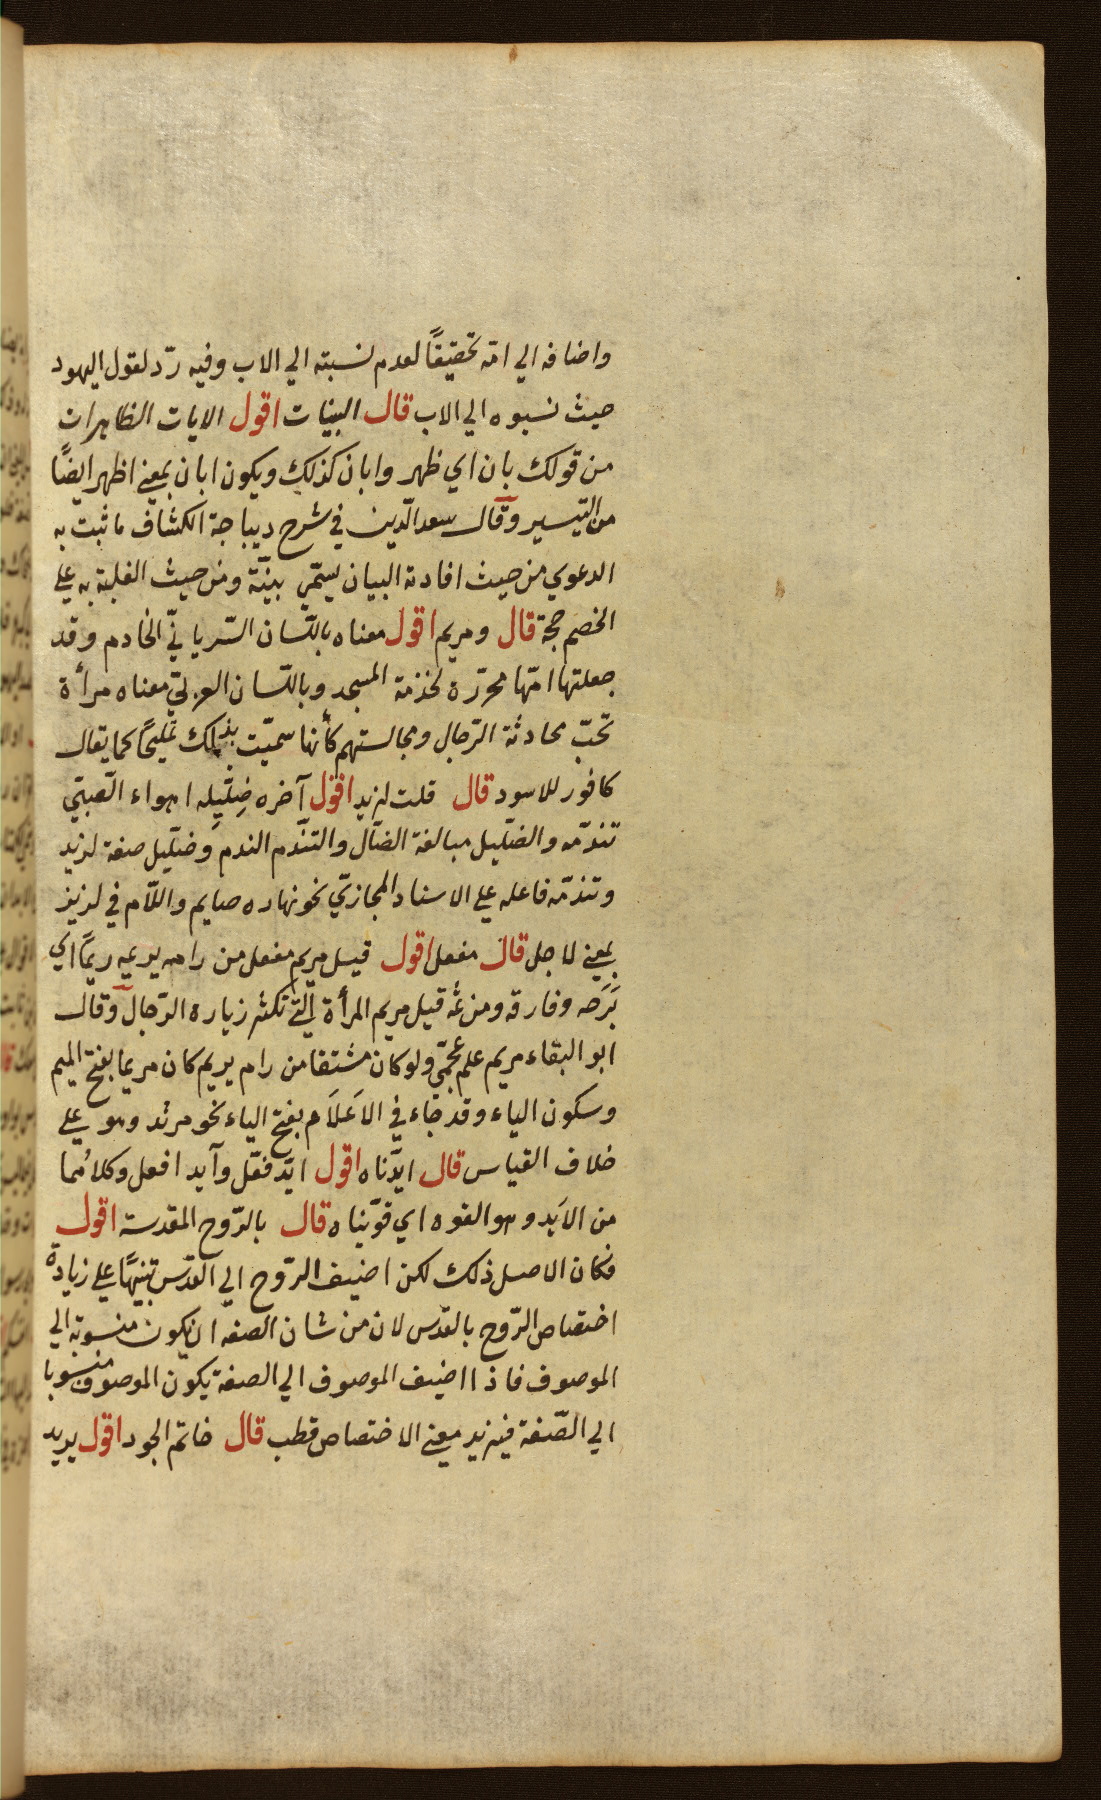 واضافه الي امّه تحقيقًا لعدم نسبته الي الاب وفيه ردّ لقول اليهود
حيث نسبوه الي الاب قال البينات اقول الايات الظاهرات
من قولك بان اي ظهر وابان كذلك ويكون ابان بمعني اظهر ايضًا
من التيسير وقال سعد الدّين في شرح ديباجة الكشاف ما ثبت به
الدعوي من حيث افادته البيان يسمّي بيّنة ومن حيث الغلبة به علي
الخصم حجة قال ومريم اقول معناه باللّسان السّرياني الخادم وقد
جعلتها امّها محرّرة لخدمة المسجد وباللّسان العربيّ معناه مرأة
تحبّ محادثة الرّجال ومجالستهم كأنها سميّت بذلك تمليحًا كما يقال
كافور للاسود قال قلت لزيد اقول آخره ضِلّيلِ اهواء الصّبيّ
تندّمه والضلّيل مبالغة الضالّ والتندّم الندم وضلّيل صفة لزيد
وتندّمه فاعله علي الاسناد المجازيّ نحو نهاره صايم واللّام في لزيد
بمعني لاجل قال مفعل اقول قيل مريم مفعل من رامه يريمه ريمًا اي
بَرَحه وفارقه ومن ثمّه قيل مريم المرأة الّتي تكثر زيارة الرّجال وقال
ابو البقاء مريم علم عجميّ ولو كان مشتقا من رام يريم كان مريما بفتح الميم
وسكون الياء وقد جاء في الاَعلاَم بفتح الياء نحو مزيد وهو علي
خلاف القياس قال ايّدناه اقول ايّد فعّل وآيد افعل وكلاهما
من الاَيد وهو القوه اي قوّيناه قال بالرّوح المقدسة اقول
فكان الاصل ذلك لكن اضيف الرّوح الي القدس تنبيهًا علي زيادة
اختصاص الرّوح بالقدس لان من شان الصفة ان يكون منسوبة الي
الموصوف فاذا اضيف الموصوف الي الصفة يكون الموصوف منسوبا
الي الصّفة فيزيد معني الاختصاص قطب قال خاتم الجود اقول يريد